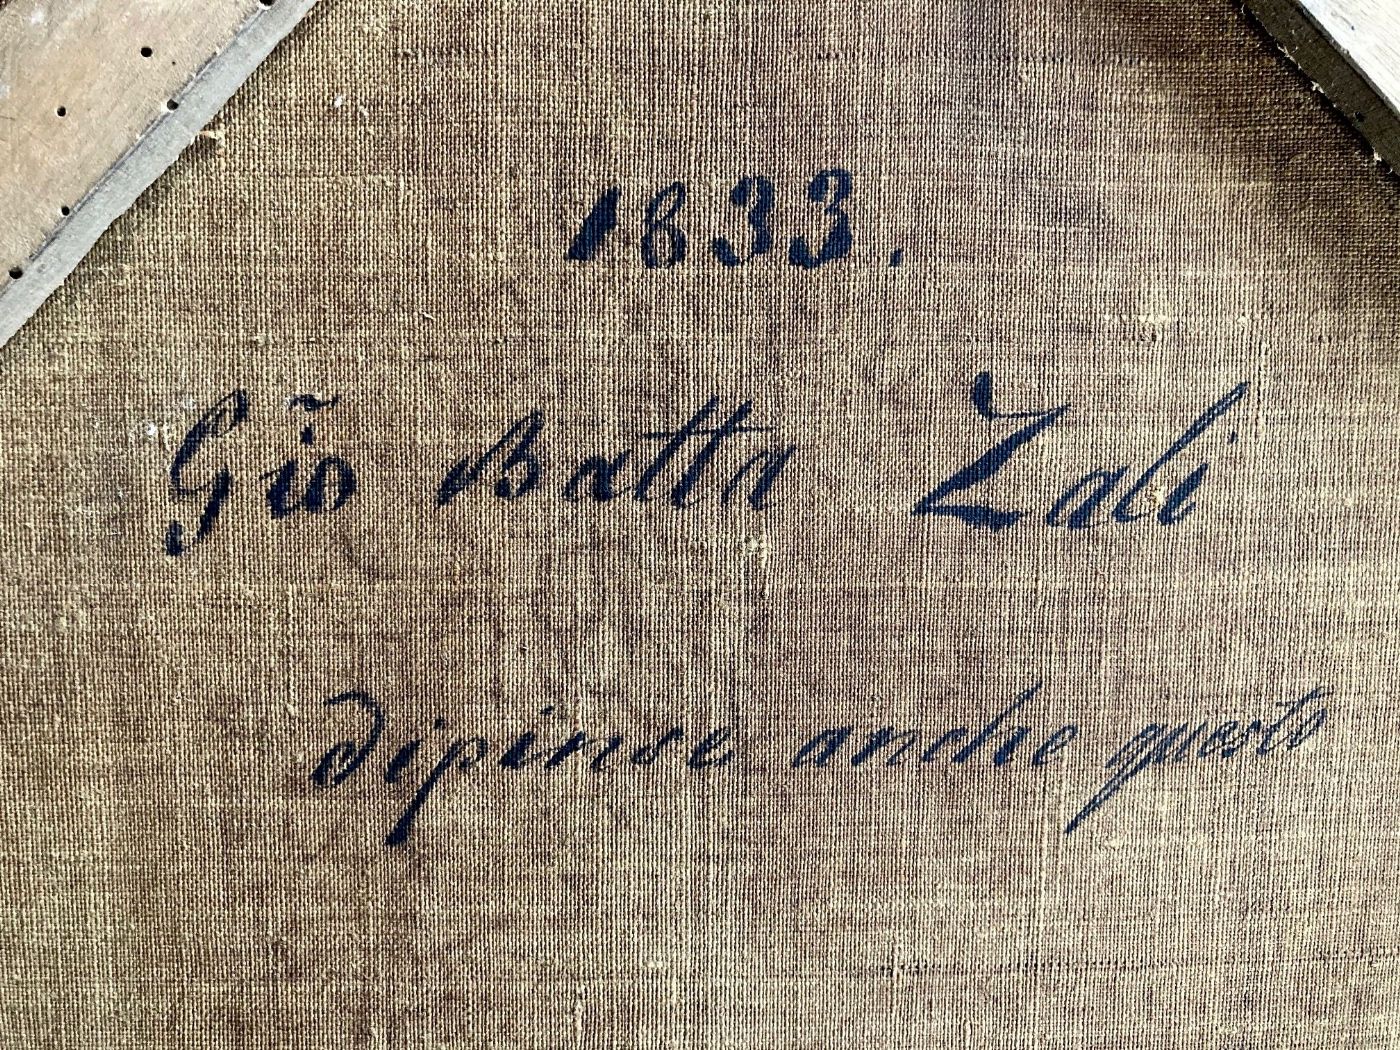 1833.
Giõ Batta Zali
dipinse anche questo